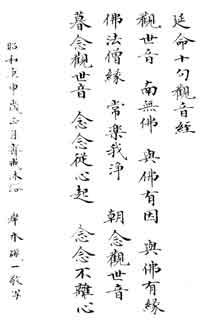 延命十句觀音經
觀世音 南無佛 與佛有因 與佛有緣
佛法僧緣 常樂我淨 朝念觀世音
暮念觀世音 念念從心起 念念不離心
昭和庚申歳正月